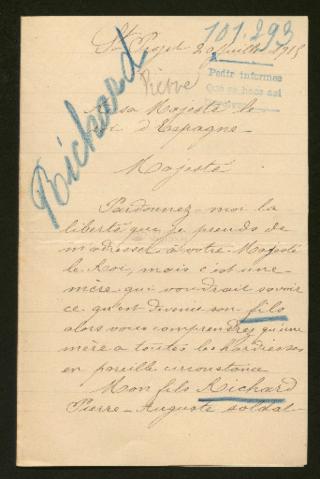 101.293
St Projet 29 juillet 1915
Richard
Pierre
Pedir informes
Que se hace así
A sa Majesté le
Roi d'Espagne
Majesté
Pardonnez-moi la
liberté que je prends de
m'adresser à votre Majesté
le Roi, mais c'est une
mère qui voudrait savoir
ce qu'est devenu son fils
alors vous comprendrez qu'une
mère a toutes les hardiesses
en pareille circonstance
Mon fils Richard
Pierre-Auguste soldat